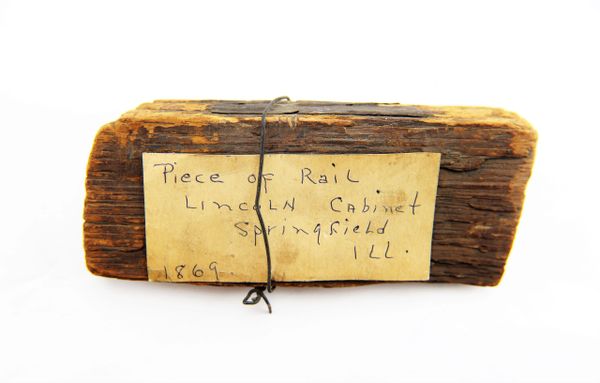 Piece of Rail
Lincoln Cabinet
Springfield
ILL.
1869.